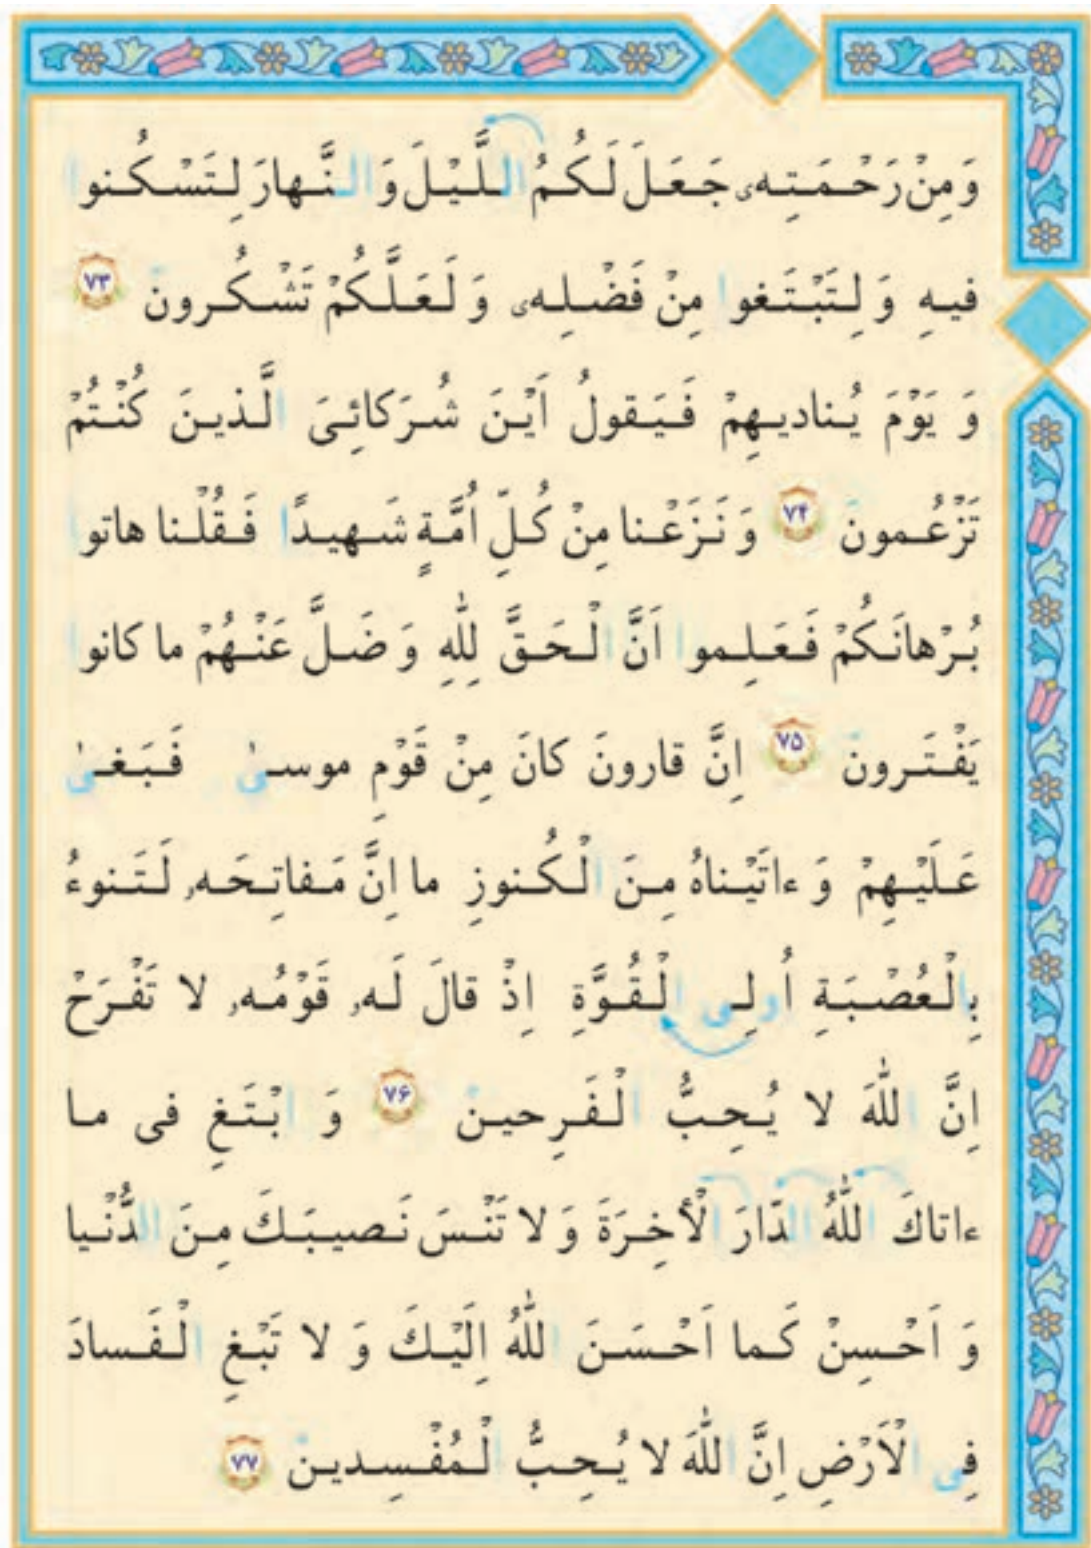 وَ مِنْ رَحْمَتِهۦ جَعَلَ لَكُمُ اللَّيْلَ وَ النَّهارَ لِتَسْكُنوا
فيهِ وَ لِتَبْتَغوا مِنْ فَضْلِهۦ وَ لَعَلَّكُمْ تَشْكُرونَ ۷۳
وَ يَوْمَ يُناديهِمْ فَيَقولُ اَيْنَ شُرَكائِیَ الَّذينَ كُنْتُمْ
تَزْعُمونَ ۷۴ وَ نَزَعْنا مِنْ كُلِّ اُمَّةٍ شَهيدًا فَقُلْنا هاتوا
بُرْهانَكُمْ فَعَلِموا اَنَّ الْحَقَّ لِلّٰهِ وَ ضَلَّ عَنْهُمْ ما كانوا
يَفْتَرونَ ۷۵ اِنَّ قارونَ كانَ مِنْ قَوْمِ موسىٰ فَبَغىٰ
عَلَيْهِمْ وَ ءاتَيْناهُ مِنَ الْكُنوزِ ما اِنَّ مَفاتِحَهۥ لَتَنوءُ
بِالْعُصْبَةِ اُولِى الْقُوَّةِ اِذْ قالَ لَهۥ قَوْمُهۥ لا تَفْرَحْ
اِنَّ اللّٰهَ لا يُحِبُّ الْفَرِحينَ ۷۶ وَ ابْتَغِ فى ما
ءاتاكَ اللّٰهُ الدّارَ الْأخِرَةَ وَ لا تَنْسَ نَصيبَكَ مِنَ الدُّنْيا
وَ اَحْسِنْ كَما اَحْسَنَ اللّٰهُ اِلَيْكَ وَ لا تَبْغِ الْفَسادَ
فِى الْاَرْضِ اِنَّ اللّٰهَ لا يُحِبُّ الْمُفْسِدينَ ۷۷